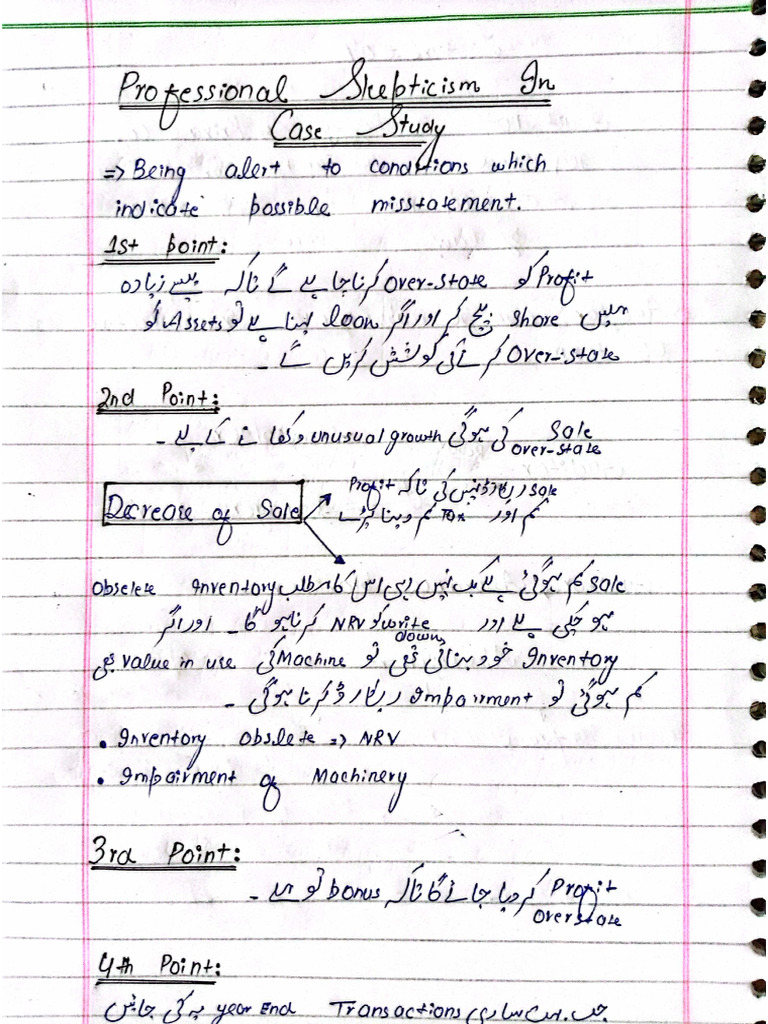 Professional Skepticism In
Case Study
=> Being alert to conditions which
indicate possible misstatement.
1st point:
Profit کو over-state کرنا چاہیں گے تاکہ پیسے زیادہ
میں share بیچ کر اور اگر loan لینا ہے تو Assets کو
over-state کرنے کی کوشش کریں گے -
2nd Point:
Sale over-state کی ہوگی unusual growth دکھانے کے لیے -
Decrease of Sale
Sale ریکارڈ نہیں کی تاکہ Profit
کم اور Tax کم دینا پڑے
Sale کم ہوگئی ہے بک نہیں رہی اس کا مطلب Inventory obselete
ہو چکی ہے اور NRV کو write down کرنا ہو گا - اور اگر
Inventory خود بنائی تھی تو Machine کی value in use بھی
کم ہوگئی تو Impairment ریکارڈ کرنا ہوگی -
• Inventory obslete => NRV
• Impairment of Machinery
3rd Point:
Profit overstate کر دیا جائے گا تاکہ bonus تو ملے -
4th Point:
جب بہت ساری Transactions year End پہ کی جائیں